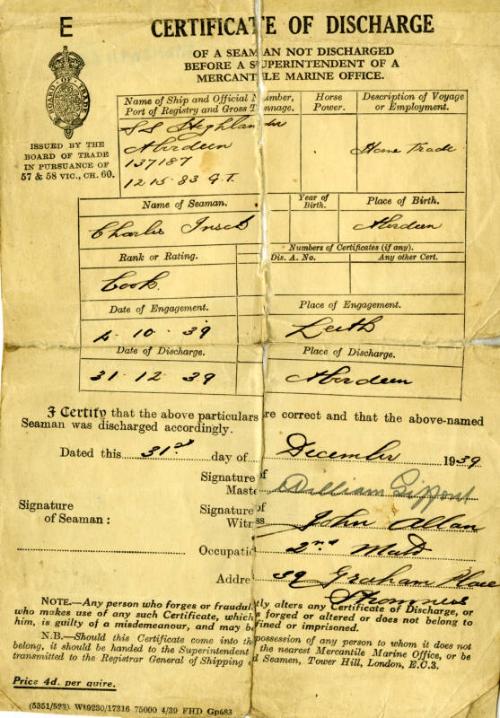 E
CERTIFICATE OF DISCHARGE
OF A SEAMAN NOT DISCHARGED
BEFORE A SUPERINTENDENT OF A
MERCANTILE MARINE OFFICE.
ISSUED BY THE
BOARD OF TRADE
IN PURSUANCE OF
57 & 58 VIC., CH. 60.
Name of Ship and Official Number,
Port of Registry and Gross Tonnage.
Horse
Power.
Description of Voyage
or Employment.
SS Highlander
Aberdeen
137187
1215.83 G.T.
Home Trade
Name of Seaman.
Year of
Birth.
Place of Birth.
Charlie Insch
Aberdeen
Rank or Rating.
Numbers of Certificates (if any).
Dis. A. No.
Any other Cert.
Cook
Date of Engagement.
Place of Engagement.
4.10.39
Leith
Date of Discharge.
Place of Discharge.
31.12.39
Aberdeen
I Certify that the above particulars are correct and that the above-named
Seaman was discharged accordingly.
Dated this 31st day of December 1939
Signature of
Master
William
Signature
of Seaman:
Signature of
Witness
John Allan
Occupation
2nd Mate
Address
39 Graham Place
Stromness
NOTE.—Any person who forges or fraudulently alters any Certificate of Discharge, or
who makes use of any such Certificate, which is forged or altered or does not belong to
him, is guilty of a misdemeanour, and may be fined or imprisoned.
N.B.—Should this Certificate come into the possession of any person to whom it does not
belong, it should be handed to the Superintendent of the nearest Mercantile Marine Office, or be
transmitted to the Registrar General of Shipping and Seamen, Tower Hill, London, E.C.3.
Price 4d. per quire.
(5351/523) Wt9230/17316 75000 4/39 FHD Gp683